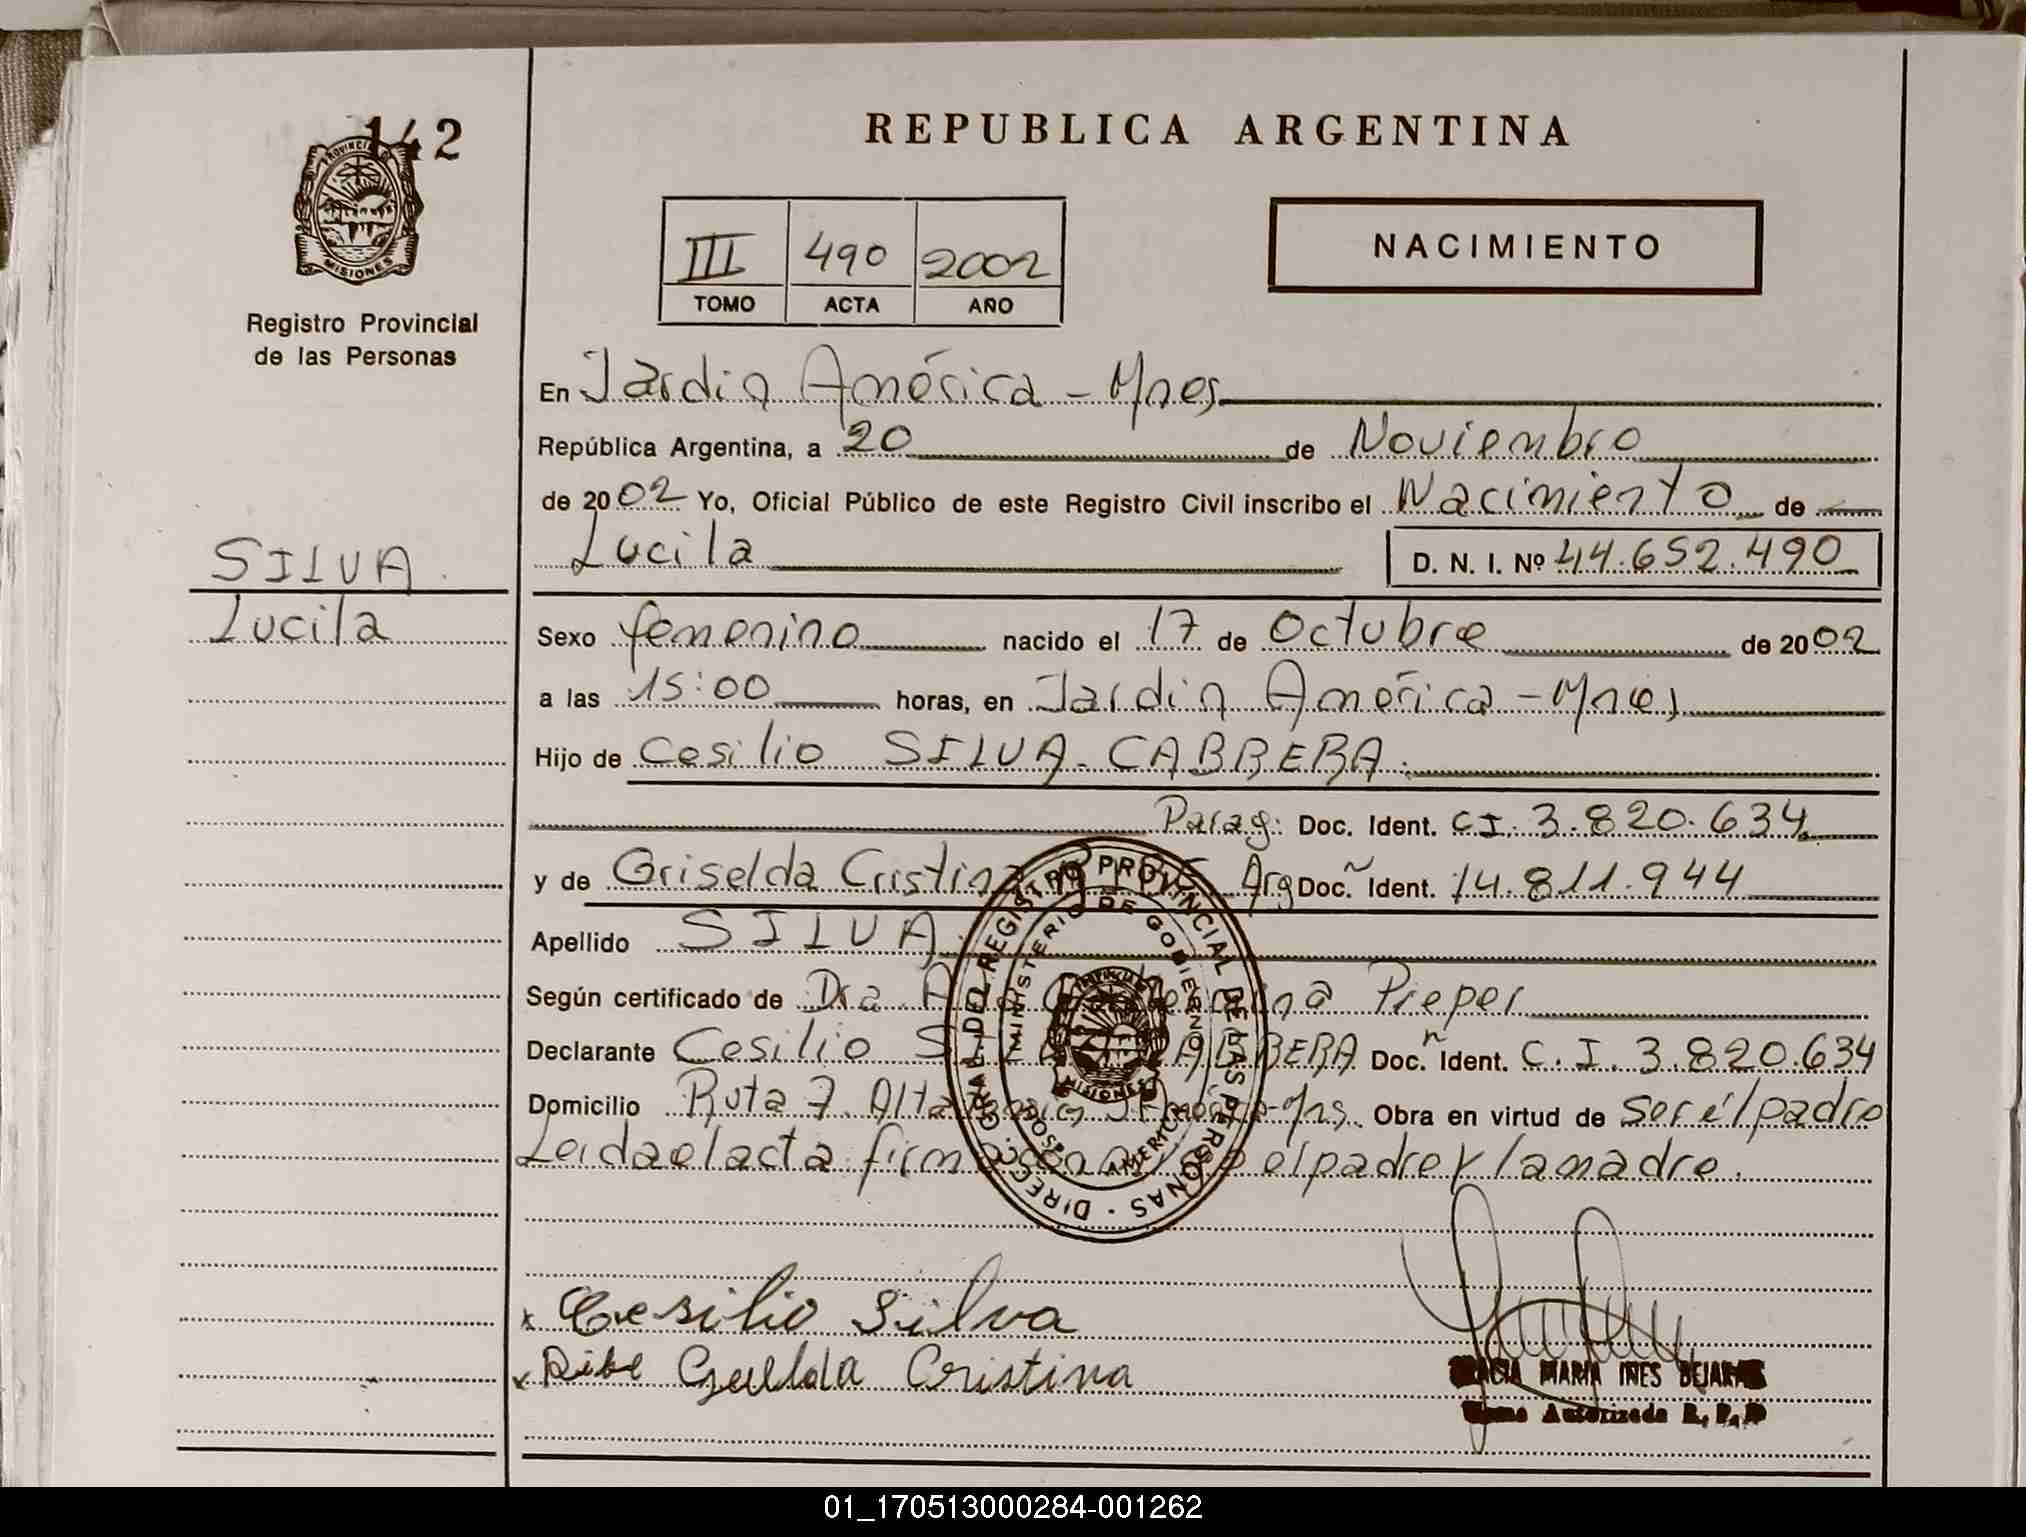 142
PROVINCIA DE
MISIONES
Registro Provincial
de las Personas
SILVA
Lucila
REPUBLICA ARGENTINA
III 490 2002
TOMO ACTA AÑO
NACIMIENTO
En Jardin América - Mnes
República Argentina, a 20 de Noviembre
de 2002 Yo, Oficial Público de este Registro Civil inscribo el Nacimiento de
Lucila D. N. I. Nº 44.652.490
Sexo femenino nacido el 17 de Octubre de 2002
a las 15:00 horas, en Jardin América - Mnes
Hijo de Cesilio SILVA - CABRERA.
Parag: Doc. Ident. CI. 3.820.634
y de Griselda Cristina Arg Doc. Ident. 14.811.944
Apellido SILVA
Según certificado de Dra. Pieper
Declarante Cesilio CABRERA Doc. Ident. C.I. 3.820.634
Domicilio Ruta 7. Obra en virtud de ser él padre
Leida el acta firman el padre y la madre.
DIREC. GRAL. DEL REGISTRO PROVINCIAL DE LAS PERSONAS
MINISTERIO DE GOBIERNO
MISIONES
AMERICA
x Cesilio Silva
x Cristina
MARIA INES
Autorizada R. P. P
01_170513000284-001262